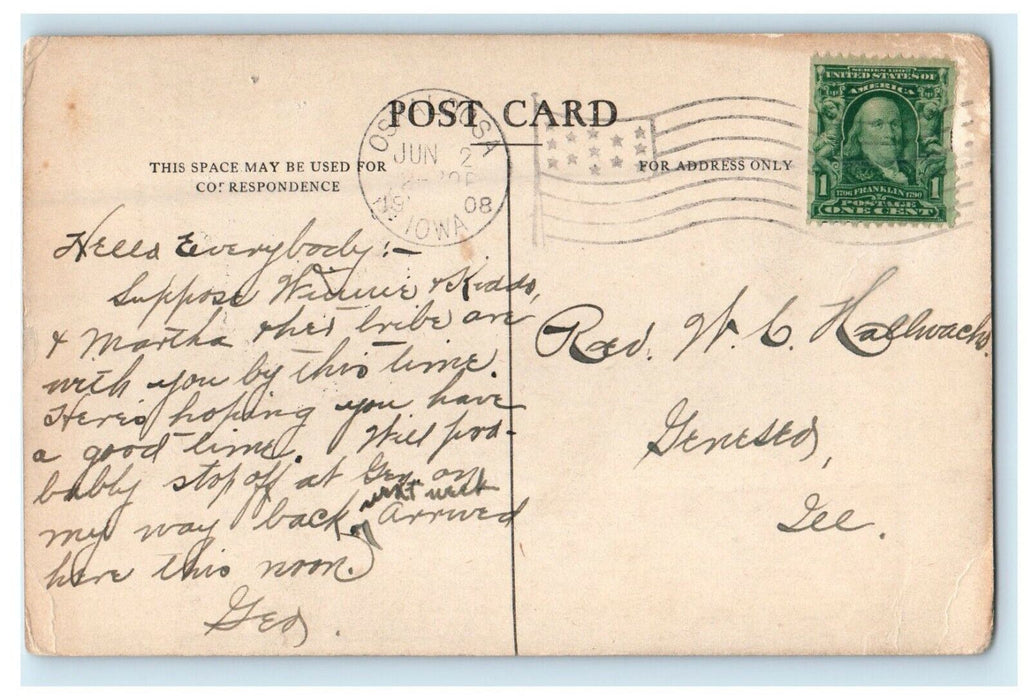 POST CARD
THIS SPACE MAY BE USED FOR
CORRESPONDENCE
FOR ADDRESS ONLY
OSKALOOSA
JUN 2
1908
IOWA
SERIES 1902
UNITED STATES OF
AMERICA
1 1
1706 FRANKLIN 1790
POSTAGE
ONE CENT
Hello Everybody:-
Suppose Winnie & Kiddo,
& Martha & her tribe are
with you by this time.
Here's hoping you have
a good time. Will pro-
bably stop off at Gen. on
my way back next week. Arrived
here this noon.
Geo.
Rev. W. C. Hallwachs.
Geneseo,
Ill.